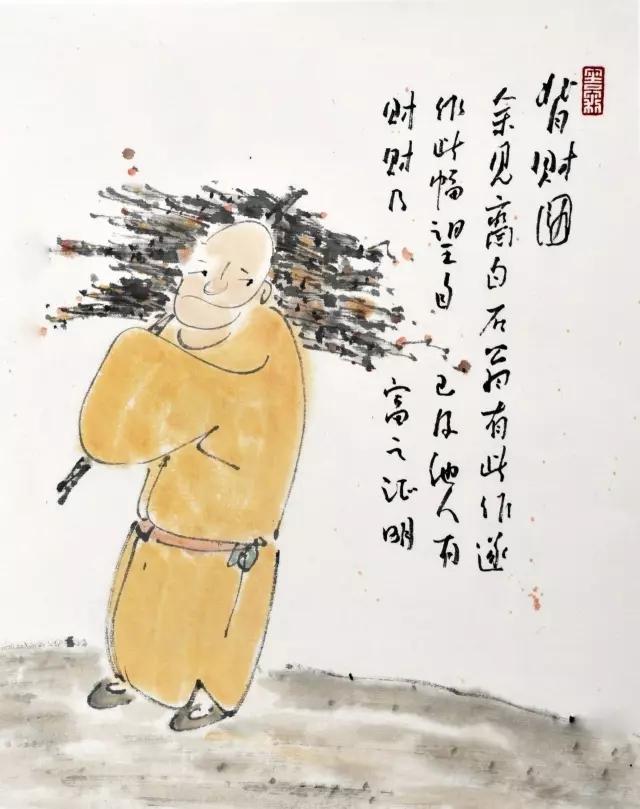 背财图
余见齐白石翁有此作遂
作此幅望自己及他人有
财财乃富之证明